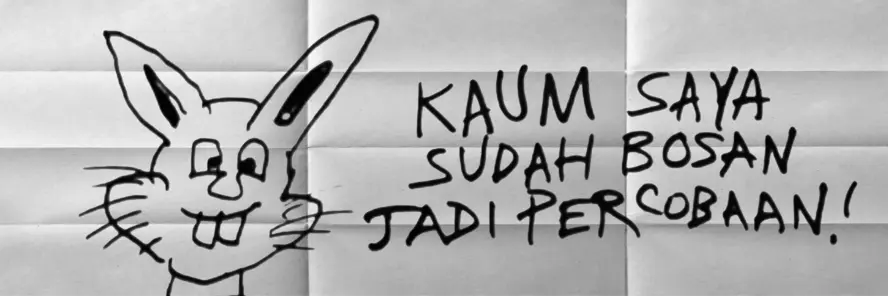 KAUM SAYA
SUDAH BOSAN
JADI PERCOBAAN!